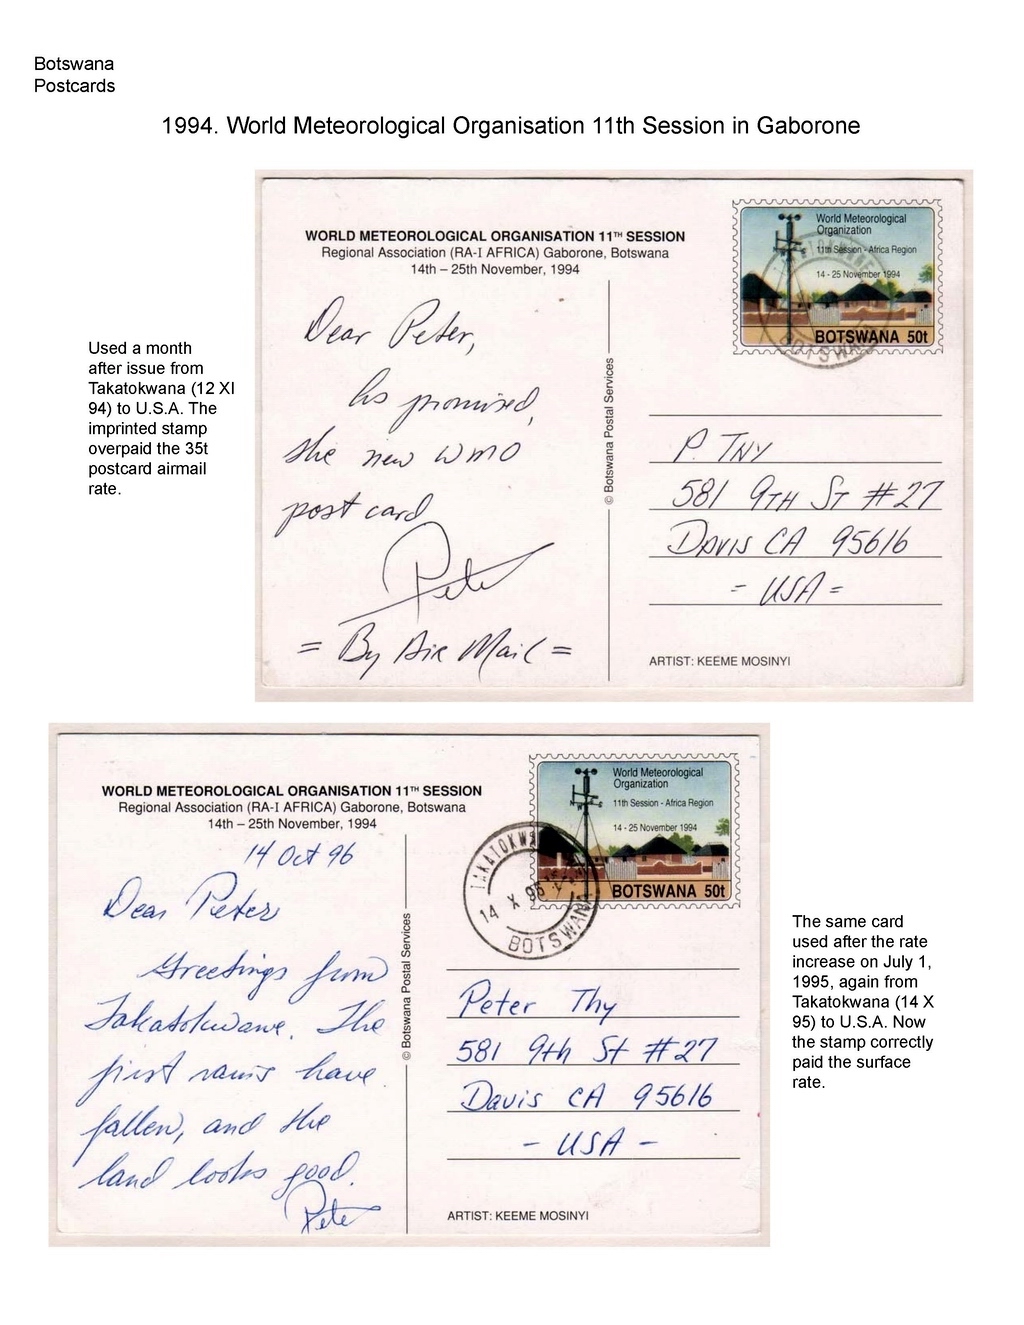 Botswana
Postcards
1994. World Meteorological Organisation 11th Session in Gaborone
Used a month
after issue from
Takatokwana (12 XI
94) to U.S.A. The
imprinted stamp
overpaid the 35t
postcard airmail
rate.
WORLD METEOROLOGICAL ORGANISATION 11TH SESSION
Regional Association (RA-I AFRICA) Gaborone, Botswana
14th – 25th November, 1994
Dear Peter,
As promised,
the new WMO
post card
Pete
= By Air Mail =
© Botswana Postal Services
World Meteorological
Organization
11th Session - Africa Region
14 - 25 November 1994
BOTSWANA 50t
BOTSWANA
P. THY
581 9TH ST #27
DAVIS CA 95616
= USA =
ARTIST: KEEME MOSINYI
WORLD METEOROLOGICAL ORGANISATION 11TH SESSION
Regional Association (RA-I AFRICA) Gaborone, Botswana
14th – 25th November, 1994
14 Oct 96
Dear Peter
Greetings from
Takatokwane. The
first rains have
fallen, and the
land looks good.
Pete
© Botswana Postal Services
World Meteorological
Organization
11th Session - Africa Region
14 - 25 November 1994
BOTSWANA 50t
TAKATOKWANE
14 X 95
BOTSWANA
Peter Thy
581 9th St #27
Davis CA 95616
- USA -
ARTIST: KEEME MOSINYI
The same card
used after the rate
increase on July 1,
1995, again from
Takatokwana (14 X
95) to U.S.A. Now
the stamp correctly
paid the surface
rate.